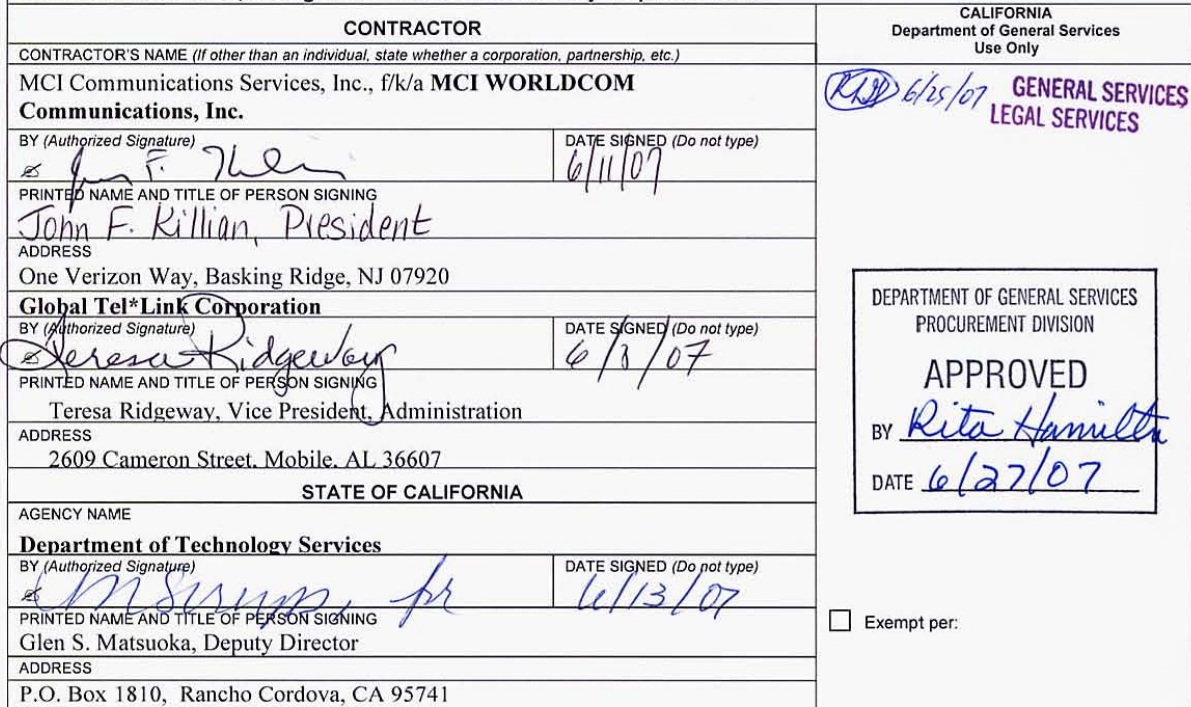 CONTRACTOR
CONTRACTOR'S NAME (If other than an individual, state whether a corporation, partnership, etc.)
MCI Communications Services, Inc., f/k/a MCI WORLDCOM
Communications, Inc.
BY (Authorized Signature)
DATE SIGNED (Do not type)
6/11/07
PRINTED NAME AND TITLE OF PERSON SIGNING
John F. Killian, President
ADDRESS
One Verizon Way, Basking Ridge, NJ 07920
Global Tel*Link Corporation
BY (Authorized Signature)
Teresa Ridgeway
DATE SIGNED (Do not type)
6/8/07
PRINTED NAME AND TITLE OF PERSON SIGNING
Teresa Ridgeway, Vice President, Administration
ADDRESS
2609 Cameron Street, Mobile, AL 36607
STATE OF CALIFORNIA
AGENCY NAME
Department of Technology Services
BY (Authorized Signature)
for
DATE SIGNED (Do not type)
6/13/07
PRINTED NAME AND TITLE OF PERSON SIGNING
Glen S. Matsuoka, Deputy Director
ADDRESS
P.O. Box 1810, Rancho Cordova, CA 95741
CALIFORNIA
Department of General Services
Use Only
6/25/07 GENERAL SERVICES
LEGAL SERVICES
DEPARTMENT OF GENERAL SERVICES
PROCUREMENT DIVISION
APPROVED
BY Rita Hamilton
DATE 6/27/07
Exempt per: